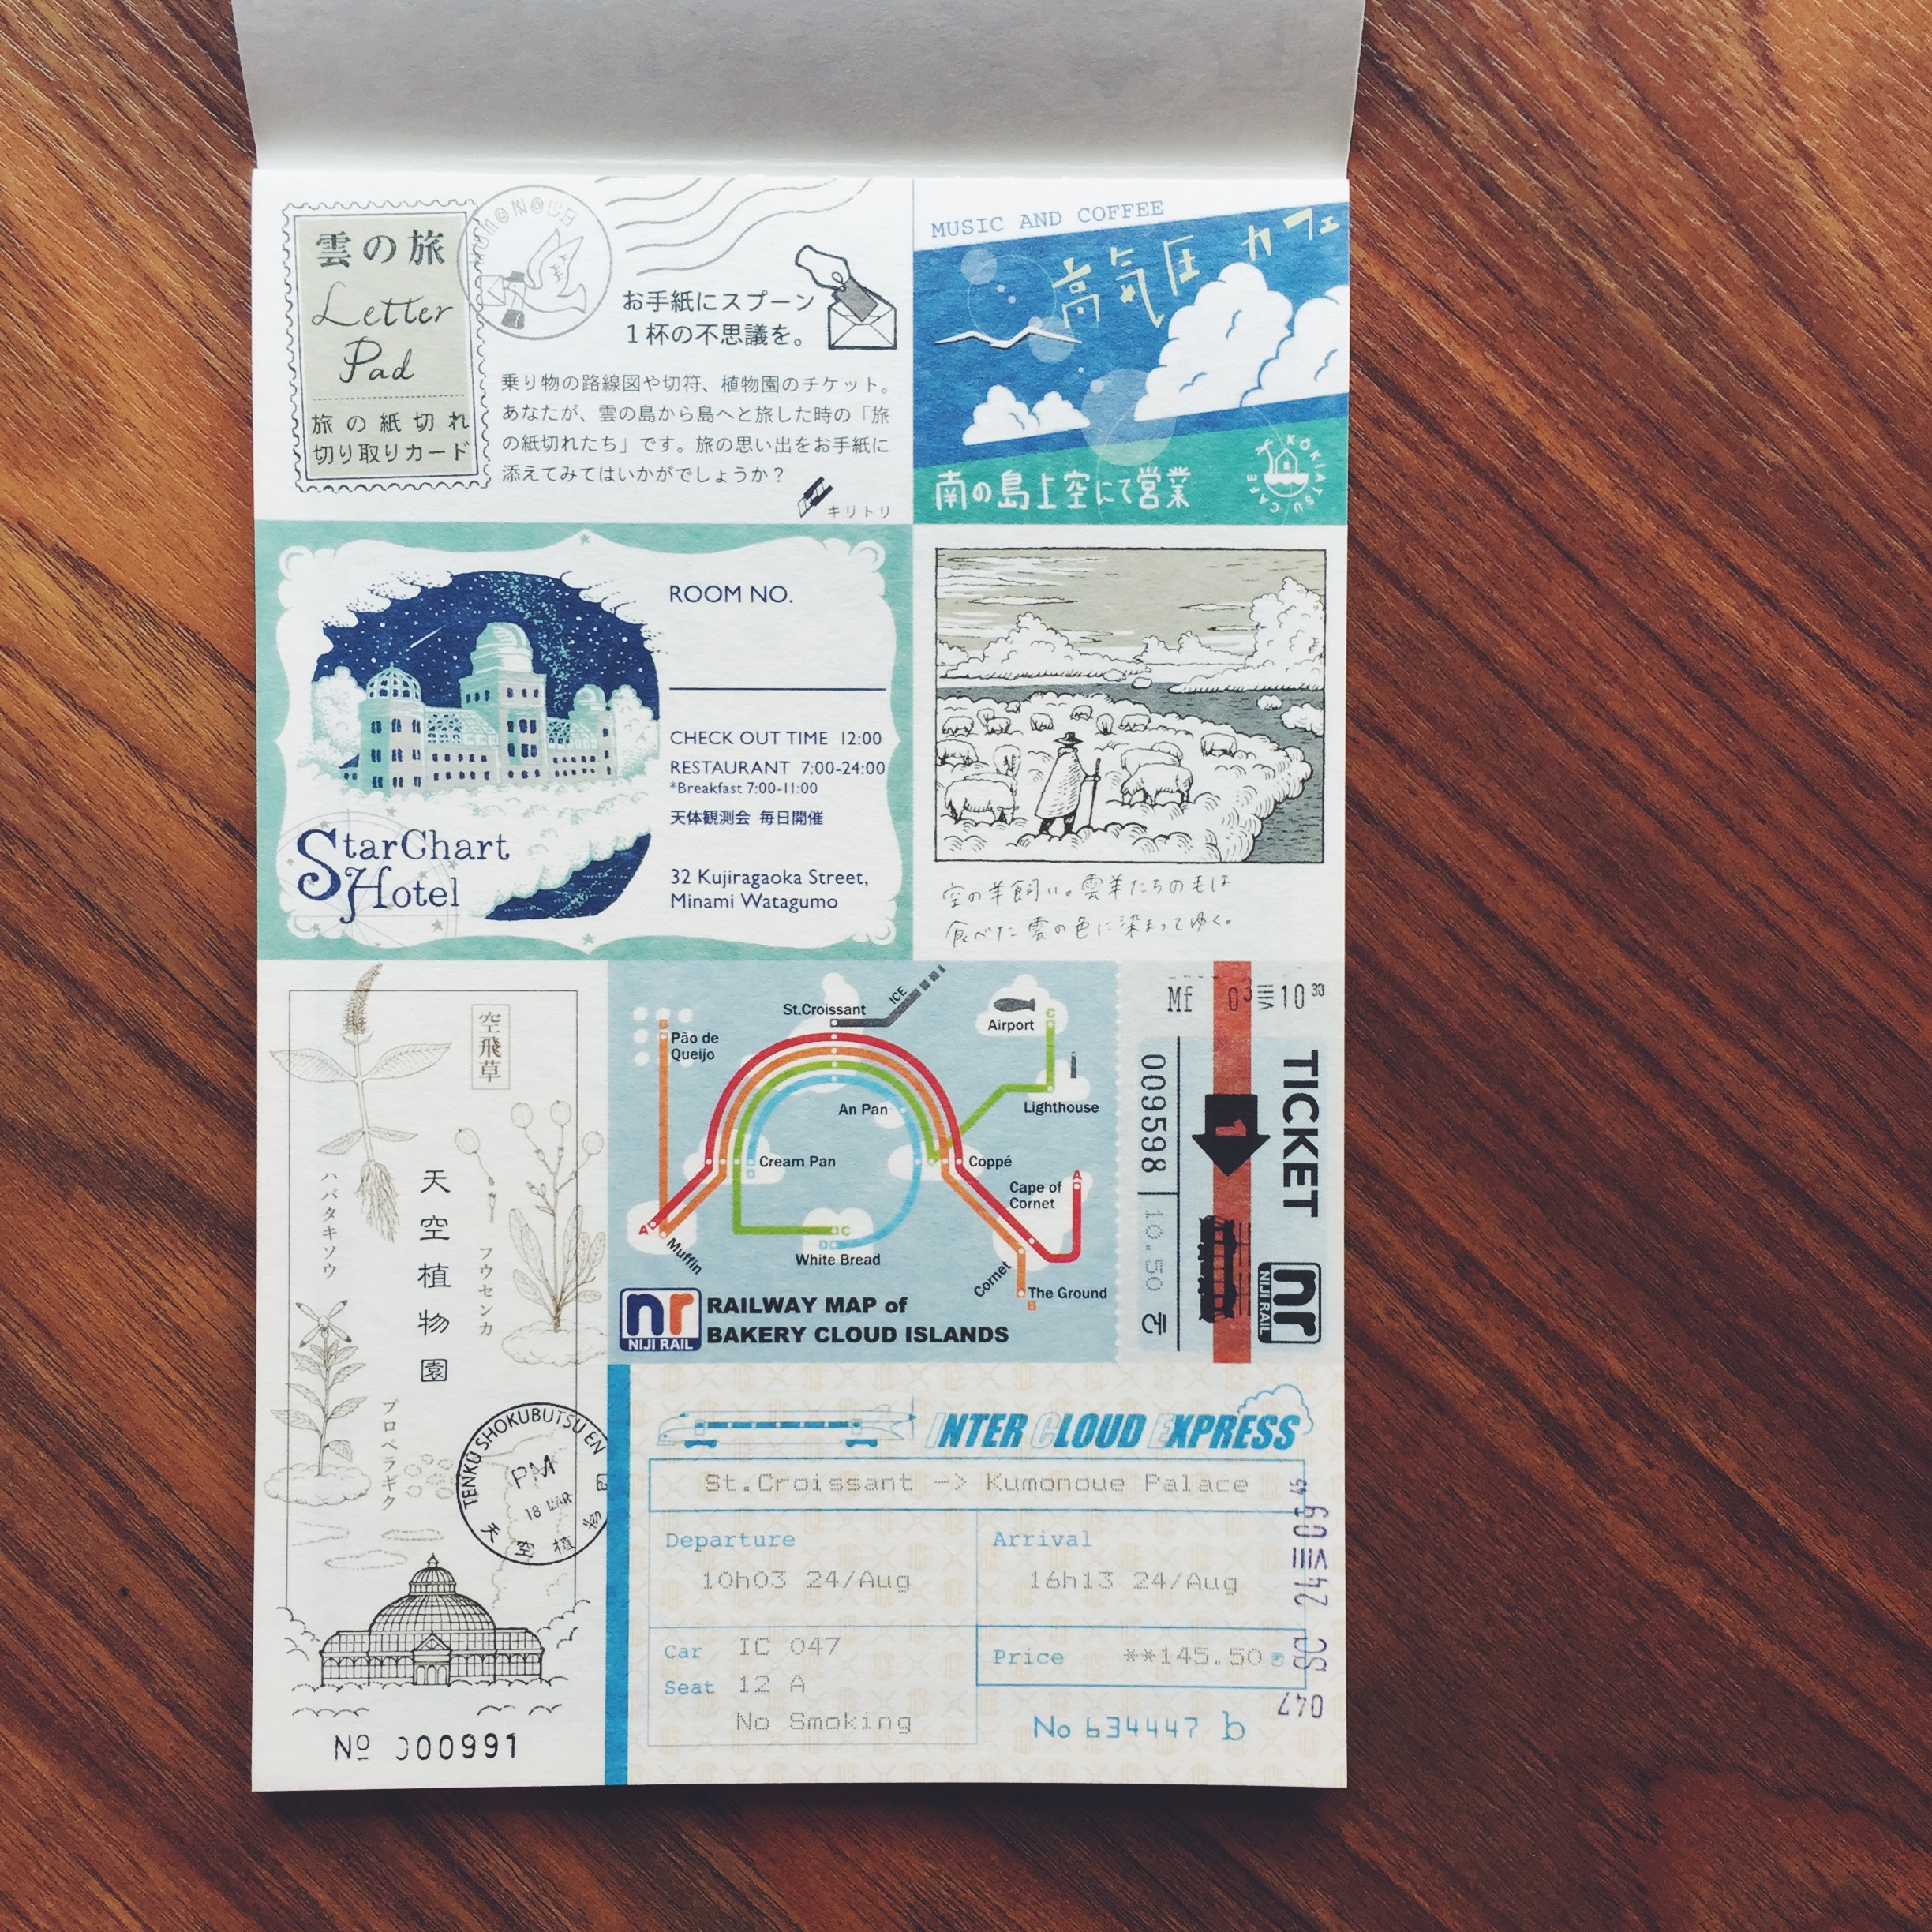 雲の旅
Letter
Pad
旅の紙切れ
切り取りカード
お手紙にスプーン
1杯の不思議を。
乗り物の路線図や切符、植物園のチケット。
あなたが、雲の島から島へと旅した時の「旅
の紙切れたち」です。旅の思い出をお手紙に
添えてみてはいかがでしょうか?
キリトリ
MUSIC AND COFFEE
高気圧カフェ
南の島上空にて営業
KOKIATSU CAFE
StarChart
Hotel
ROOM NO.
CHECK OUT TIME 12:00
RESTAURANT 7:00-24:00
*Breakfast 7:00-11:00
天体観測会 毎日開催
32 Kujiragaoka Street,
Minami Watagumo
空の羊飼い。雲羊たちの毛は
食べた雲の色に染まってゆく。
空飛草
ハバタキソウ
天空植物園
フウセンカ
プロペラギク
TENKU SHOKUBUTSU EN
PM
18 MAR
天空植物
No 000991
St.Croissant
ICE
Airport
C
B
Pão de
Queijo
An Pan
Lighthouse
Cream Pan
D
Coppé
Cape of
Cornet
A
A
Muffin
C
D
White Bread
Cornet
The Ground
B
nr
NIJI RAIL
RAILWAY MAP of
BAKERY CLOUD ISLANDS
Mf 03 VIII 10 30
TICKET
1
009598
10.50
nr
NIJI RAIL
INTER CLOUD EXPRESS
St.Croissant -> Kumonoue Palace
Departure
10h03 24/Aug
Arrival
16h13 24/Aug
Car IC 047
Seat 12 A
No Smoking
Price **145.50
No 634447 b
047 SC 24 VIII 09 45